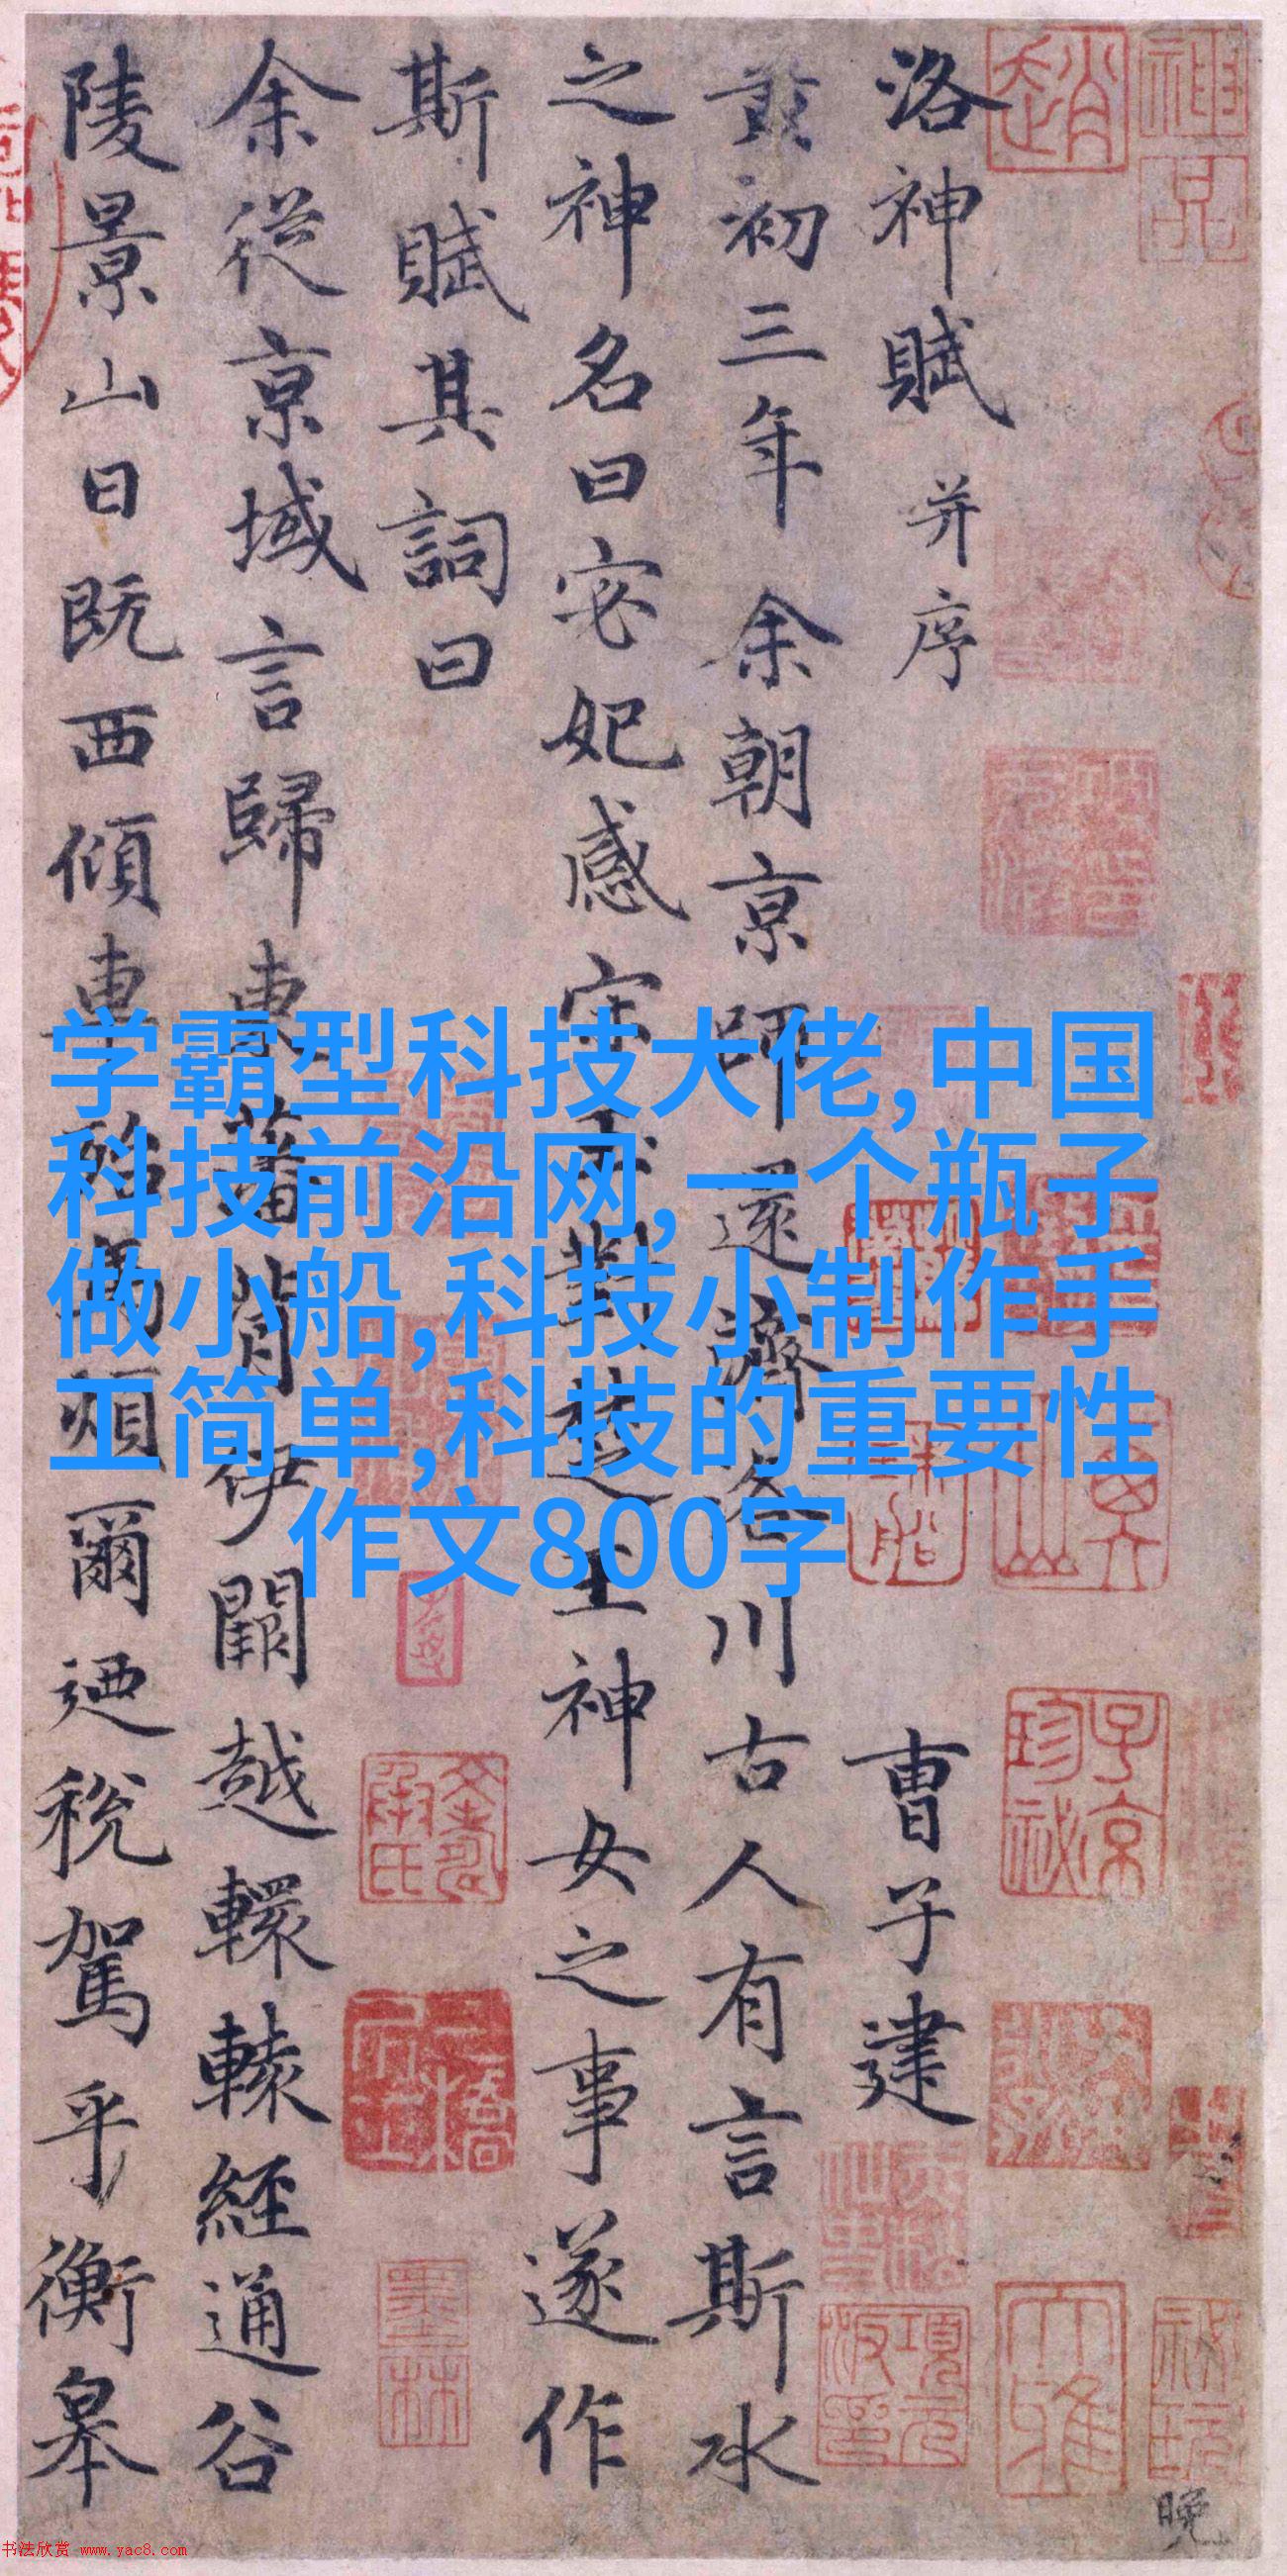 洛神賦 并序 曹子建
黄初三年余朝京師還濟洛川古人有言斯水
之神名曰宓妃感宋玉對楚王神女之事遂作
斯賦其詞曰
余從京域言歸東藩背伊闕越轘轅經通谷
陵景山日既西傾車殆馬煩爾迺稅駕乎衡皋
晚
学霸型科技大佬,中国
科技前沿网,一个瓶子
做小船,科技小制作手
工简单,科技的重要性
作文800字
书法欣赏 www.yac8.com